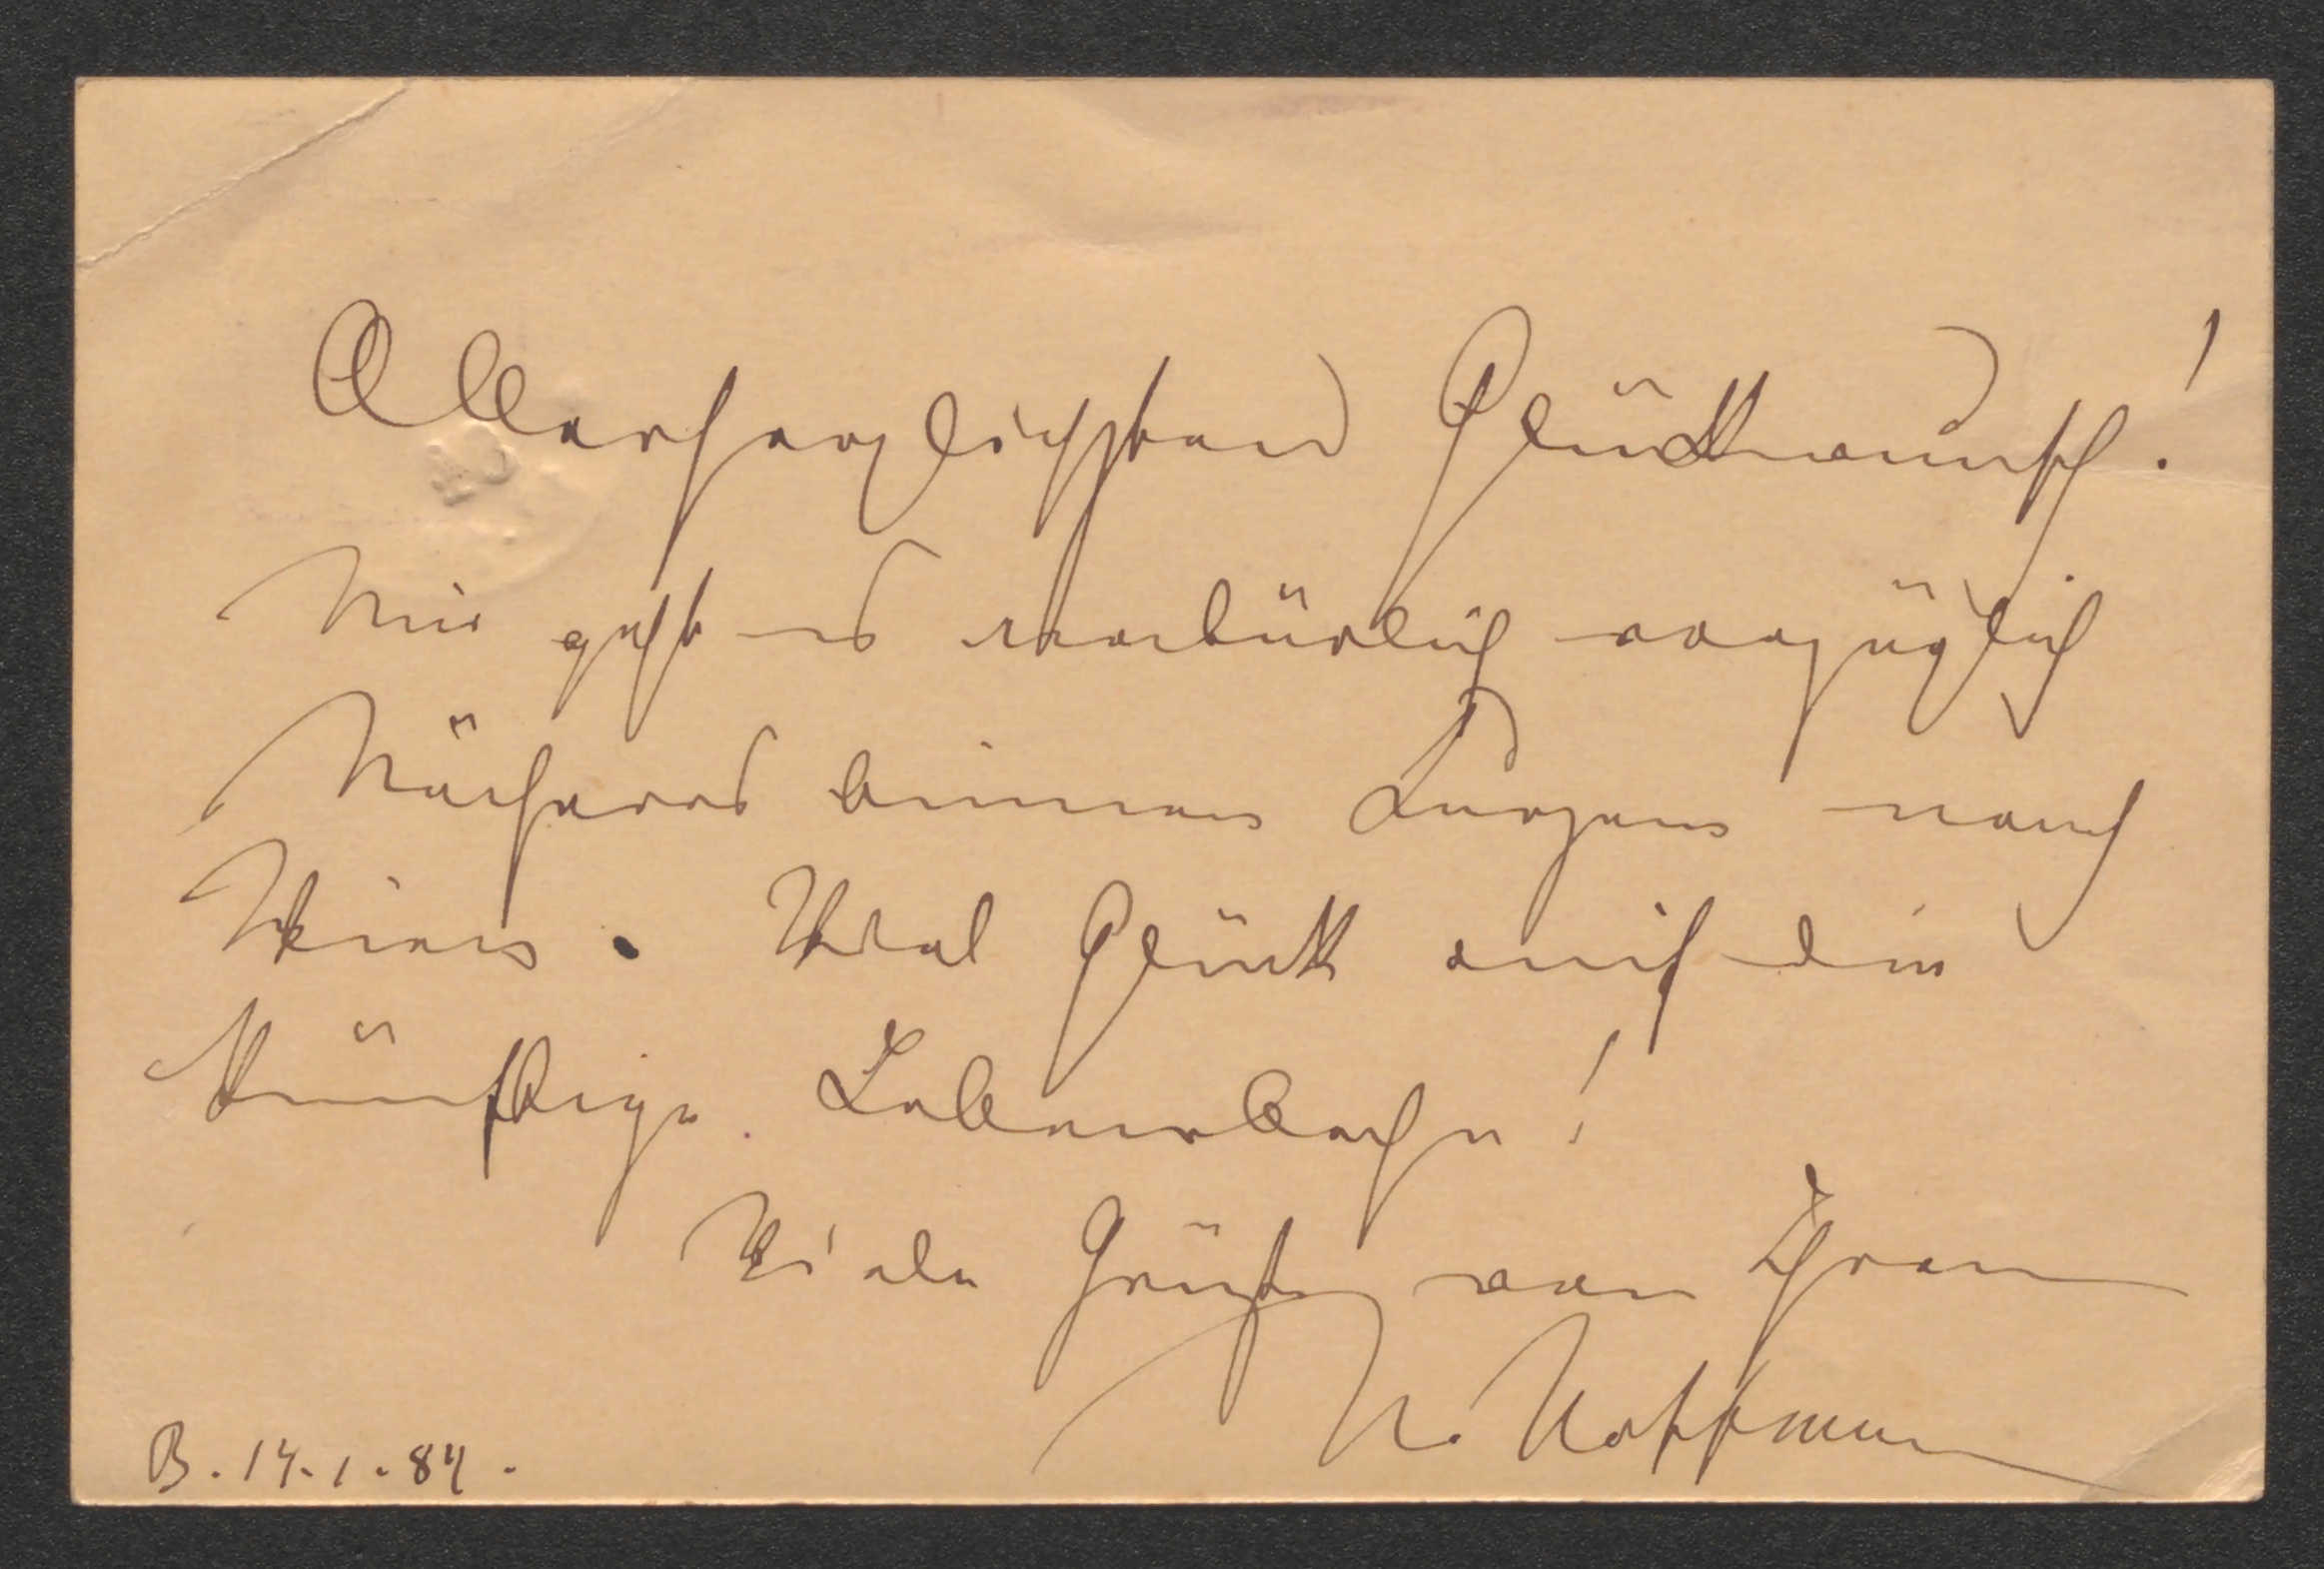 Allerherzlichsten Glückwunsch!
Mir geht es natürlich vorzüglich
Näheres binnen Kurzem nach
Wien. Viel Glück auf die
künftige Lebensbahn!
Viele Grüße von Ihrem
Hoffmann
B. 14.1.84.